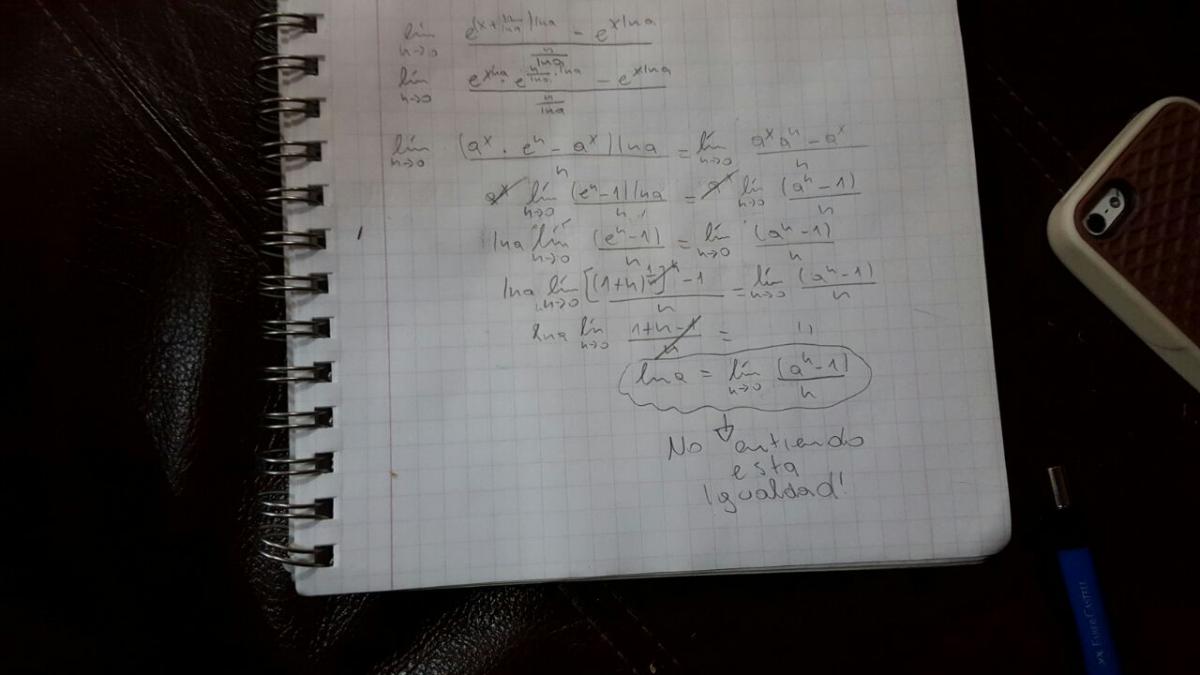 lím h→0 (e^((x + h/lna) lna) - e^(x lna)) / (h/lna)
lím h→0 (e^(x lna) · e^(h/lna · lna) - e^(x lna)) / (h/lna)
lím h→0 (a^x · e^h - a^x) lna / h = lím h→0 (a^x a^h - a^x) / h
a^x lím h→0 (e^h - 1) lna / h = a^x lím h→0 (a^h - 1) / h
lna lím h→0 (e^h - 1) / h = lím h→0 (a^h - 1) / h
lna lím h→0 ([(1+h)^(1/h)]^h - 1) / h = lím h→0 (a^h - 1) / h
lna lím h→0 (1+h-1) / h = "
lna = lím h→0 (a^h - 1) / h
↓
No entiendo
esta
Igualdad!